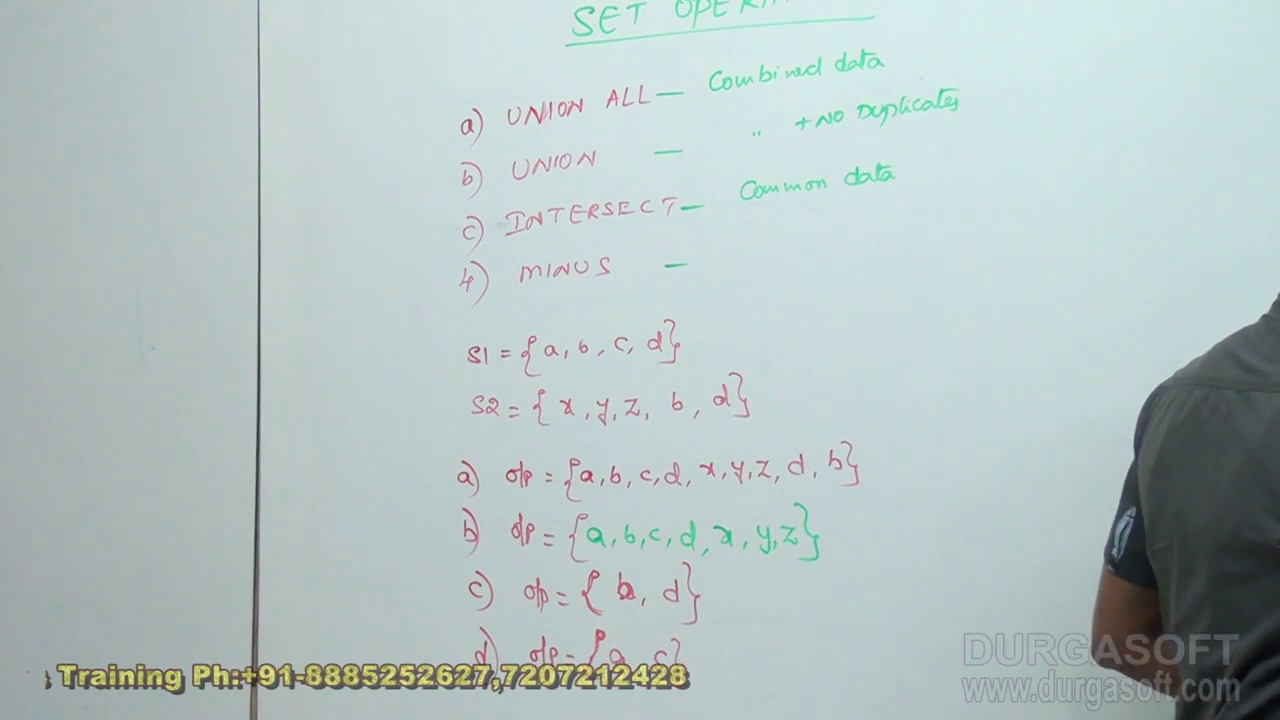 SET OPERA
a) UNION ALL — Combined data
b) UNION — " + NO Duplicates
c) INTERSECT — Common data
4) MINUS —
S1 = {a, b, c, d}
S2 = {x, y, z, b, d}
a) o/p = {a, b, c, d, x, y, z, d, b}
b) o/p = {a, b, c, d, x, y, z}
c) o/p = {b, d}
d) o/p = {a, c}
Training Ph:+91-8885252627,7207212428
DURGASOFT
www.durgasoft.com